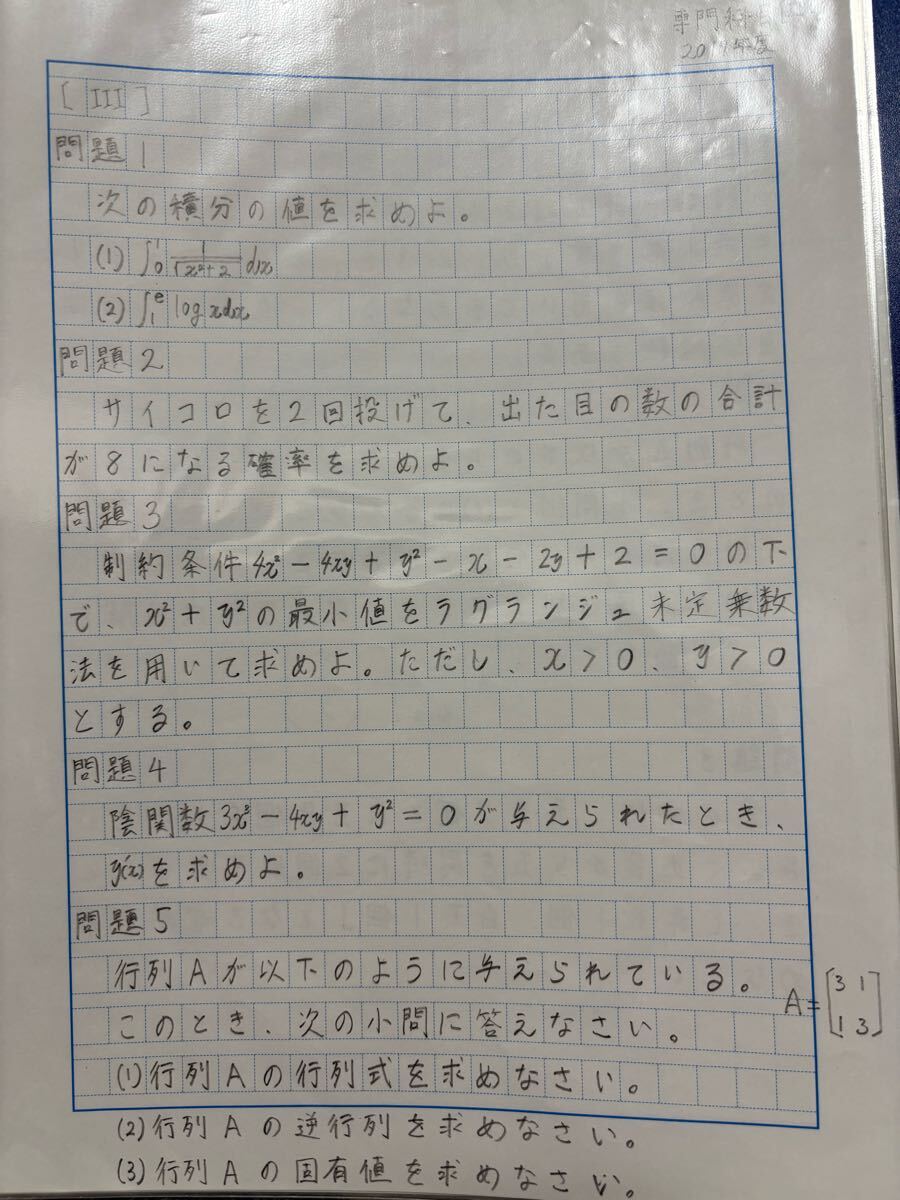 専門
[III]
問題1
次の積分の値を求めよ。
(1) ∫₀¹ 1/√(x²+2) dx
(2) ∫₁ᵉ log x dx
問題2
サイコロを2回投げて、出た目の数の合計
が8になる確率を求めよ。
問題3
制約条件4x²-4xy+y²-x-2y+2=0の下
で、x²+y²の最小値をラグランジュ未定乗数
法を用いて求めよ。ただし、x>0、y>0
とする。
問題4
陰関数3x²-4xy+y²=0が与えられたとき、
y'(x)を求めよ。
問題5
行列Aが以下のように与えられている。
A=[3 1
1 3]
このとき、次の小問に答えなさい。
(1)行列Aの行列式を求めなさい。
(2)行列Aの逆行列を求めなさい。
(3)行列Aの固有値を求めなさい。